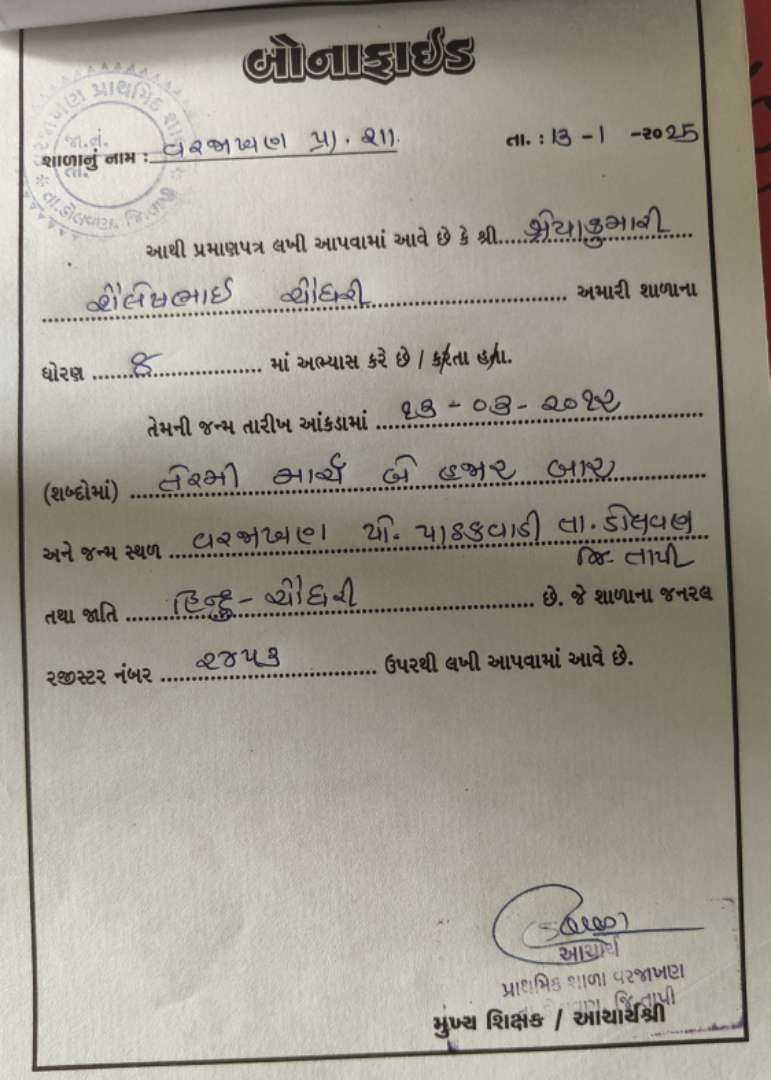 બોનાફાઈડ
વરજાખણ પ્રાથમિક શાળા
જા.નં.
તા.
તા.ડોલવણ, જિ.તાપી
શાળાનું નામ : વરજાખણ પ્રા. શા. તા. : 13 - 1 - ૨૦25
આથી પ્રમાણપત્ર લખી આપવામાં આવે છે કે શ્રી.... શ્રેયાકુમારી
શૈલેષભાઈ ચૌધરી અમારી શાળાના
ધોરણ ૭ માં અભ્યાસ કરે છે / કરતા હતા.
તેમની જન્મ તારીખ આંકડામાં ૧૩ - ૦૩ - ૨૦૧૨
(શબ્દોમાં) તેરમી માર્ચ બે હજાર બાર
અને જન્મ સ્થળ વરજાખણ પો. પાઠકવાડી તા. ડોલવણ
જિ. તાપી
તથા જાતિ હિન્દુ - ચૌધરી છે. જે શાળાના જનરલ
રજીસ્ટર નંબર ૨૪૫૩ ઉપરથી લખી આપવામાં આવે છે.
આચાર્ય
પ્રાથમિક શાળા વરજાખણ
જિ.તાપી
મુખ્ય શિક્ષક / આચાર્યશ્રી